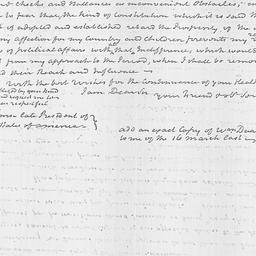 and checks and Ballances as inconvenient Obstacles;
to fear that the kind of Construction which it is said
of adopted and established retard the Prosperity of the
my affection for my Country and Children prevents my
of political affairs with that Indifference, which would
from my approach to the Period, when I shall be remov
their Reach and Influence
With the best Wishes for the Continuance of your Heal
I am Dear Sir your Friend & ob
late President of
States of America
add an exact Copy of
to me of the 16 March last